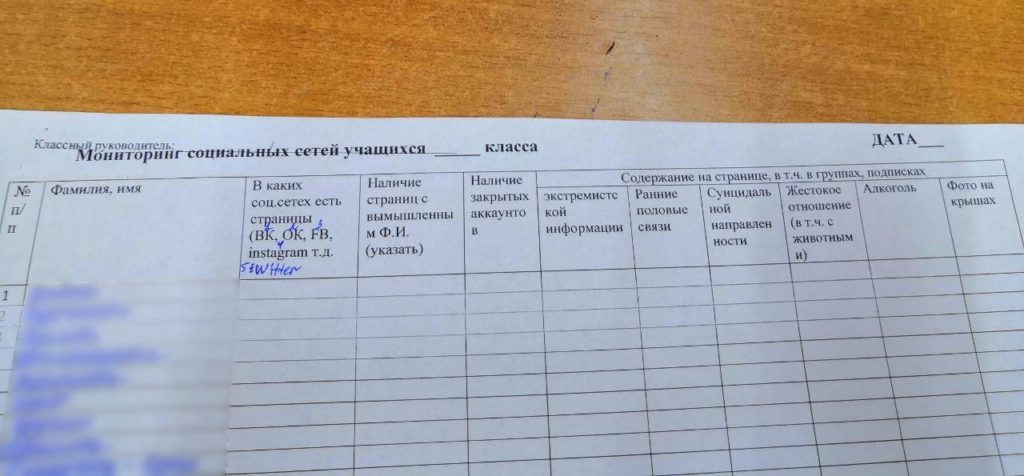 Классный руководитель:
Мониторинг социальных сетей учащихся _____ класса
ДАТА___
№
п/
п
Фамилия, имя
В каких
соц.сетех есть
страницы
(ВК, ОК, FB,
instagram т.д.
5 twitter
Наличие
страниц с
вымышленны
м Ф.И.
(указать)
Наличие
закрытых
аккаунто
в
Содержание на странице, в т.ч. в группах, подписках
экстремистс
кой
информации
Ранние
половые
связи
Суицидаль
ной
направлен
ности
Жестокое
отношение
(в т.ч. с
животным
и)
Алкоголь
Фото на
крышах
1
2
3